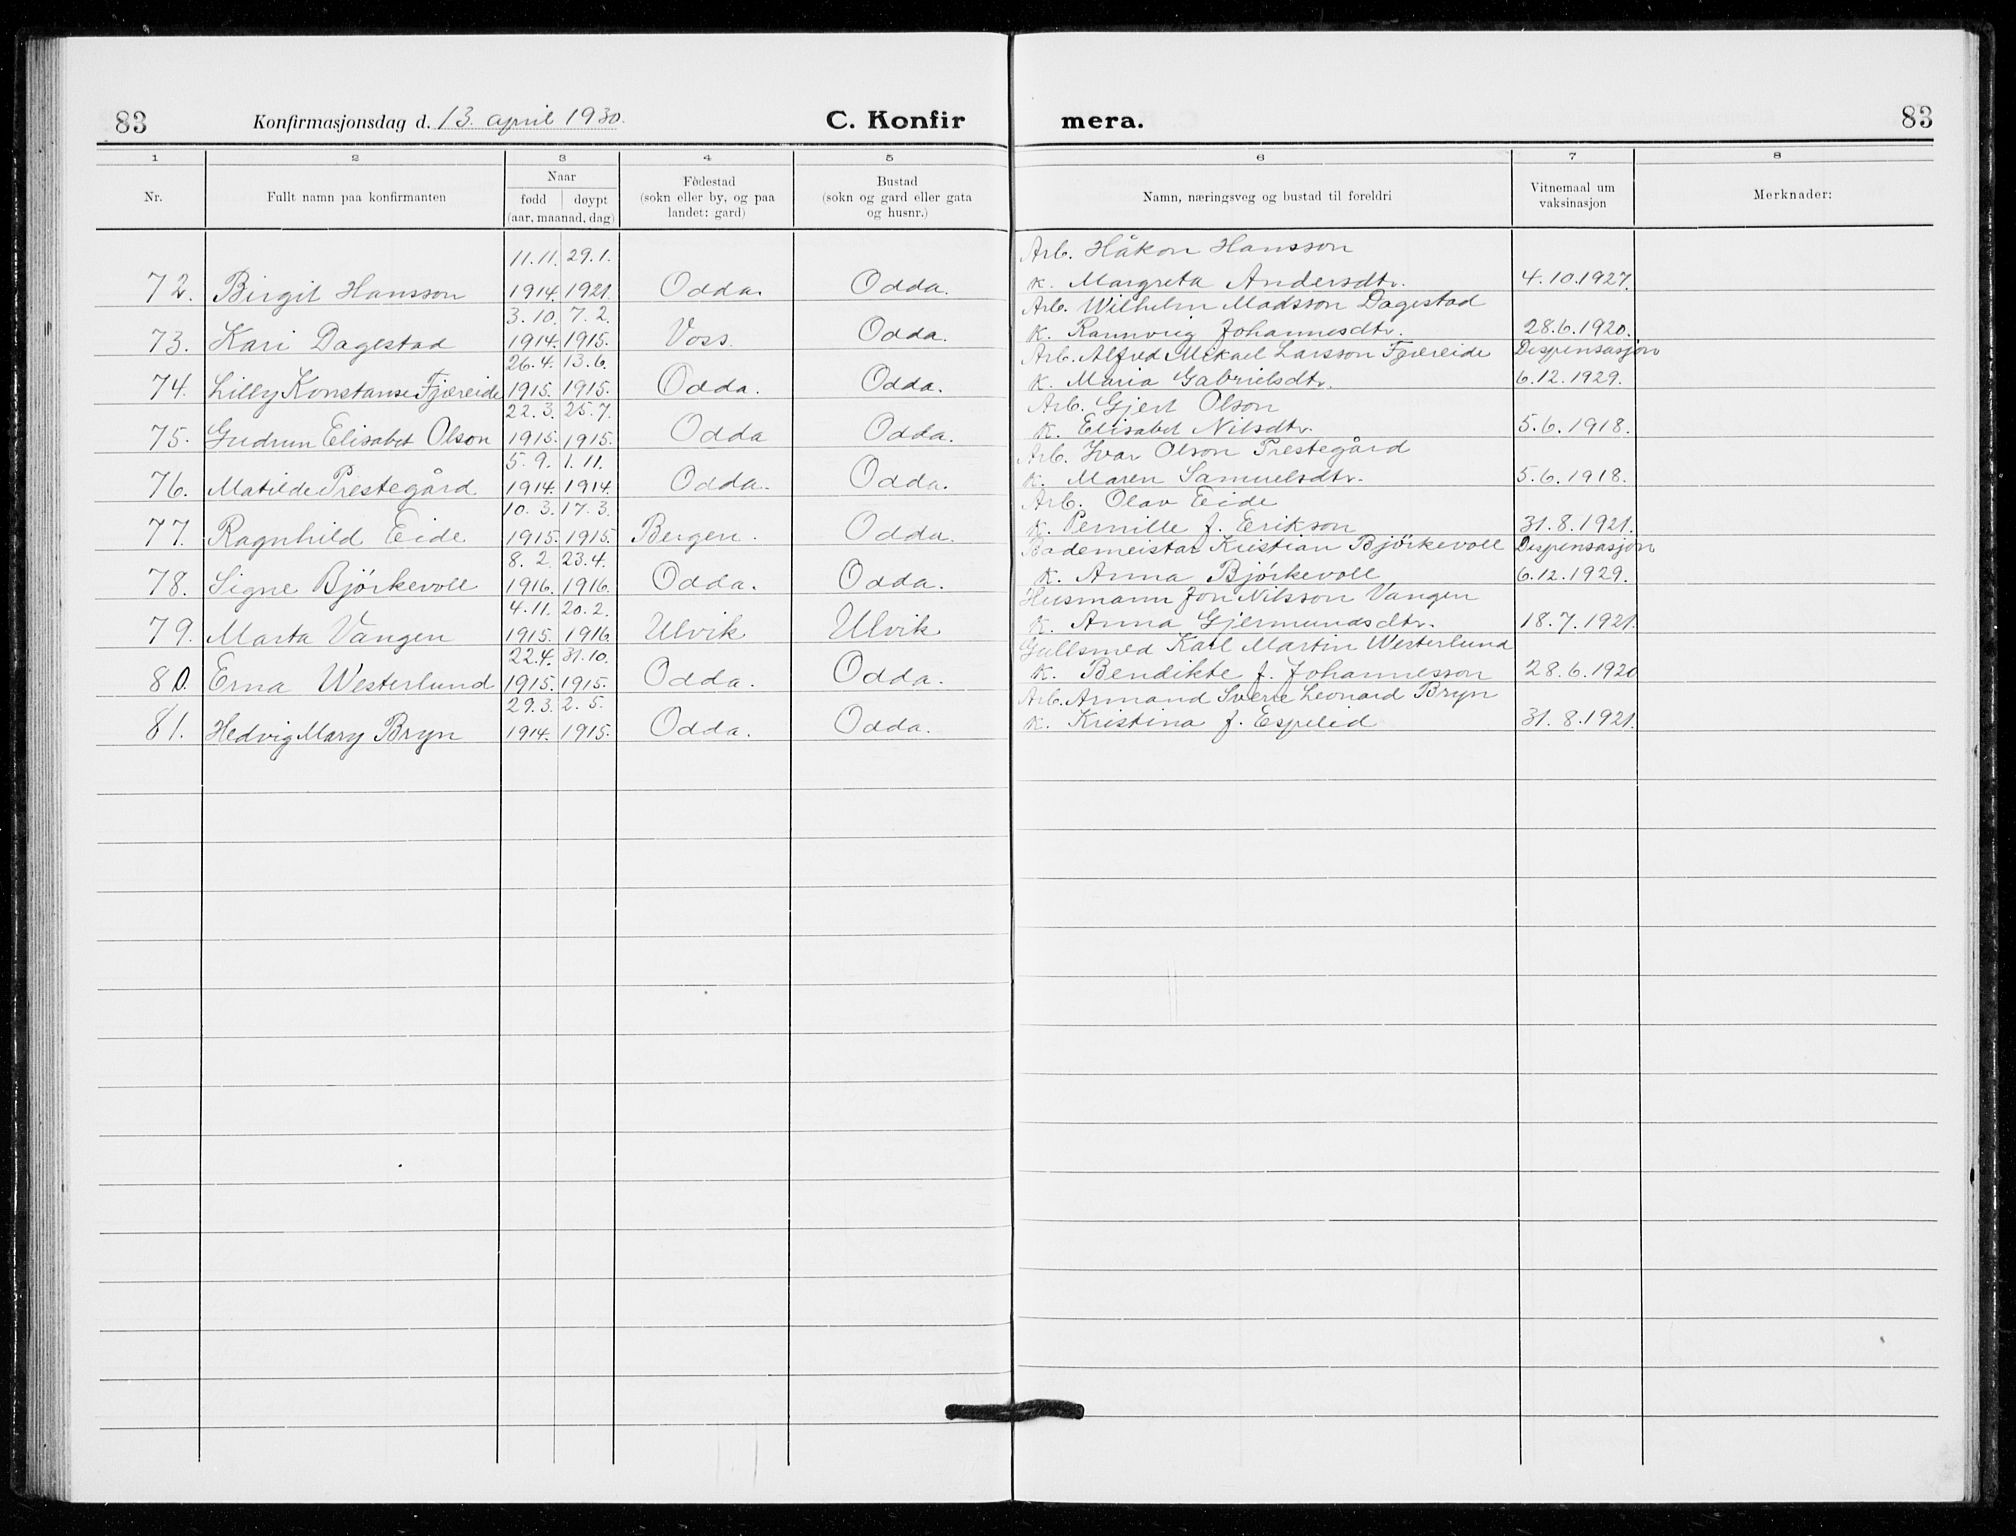 83 Konfirmasjonsdag d. 13. april 1930. C. Konfir mera. 83
1 2 3 4 5 6 7 8
Nr. Fullt namn paa konfirmanten Naar fødd døypt (aar, maanad, dag) Fødestad (sokn eller by, og paa landet: gard) Bustad (sokn og gard eller gata og husnr.) Namn, næringsveg og bustad til foreldri Vitnemaal um vaksinasjon Merknader:
11.11. 29.1. Arb. Håkon Hansson
72. Birgit Hansson 1914. 1921. Odda. Odda. K. Margreta Andersdtr. 4.10.1927.
3.10. 7.2. Arb. Wilhelm Madsson Dagestad
73. Kari Dagestad 1914. 1915. Voss. Odda. K. Rannveig Johannesdtr. 28.6.1920.
26.4. 13.6. Arb. Alfred Mikael Larsson Fjæreide Dispensasjon
74. Lilly Konstanse Fjæreide 1915. 1915. Odda. Odda. K. Maria Gabrielsdtr. 6.12.1929.
22.3. 25.7. Arb. Gjert Olson
75. Gudrun Elisabet Olson 1915. 1915. Odda Odda. K. Elisabet Nilsdtr. 5.6.1918.
5.9. 1.11. Arb. Ivar Olson Prestegård
76. Matilde Prestegård 1914. 1914. Odda. Odda. K. Maren Samuelsdtr. 5.6.1918.
10.3. 17.3. Arb. Olav Eide
77. Ragnhild Eide 1915. 1915. Bergen. Odda. K. Pernille f. Erikson 31.8.1921.
8.2. 23.4. Bademeistar Kristian Bjørkevoll Dispensasjon
78. Signe Bjørkevoll 1916. 1916. Odda. Odda. K. Anna Bjørkevoll 6.12.1929.
4.11. 20.2. Husmann Jon Nilsson Vangen
79. Marta Vangen 1915. 1916. Ulvik Ulvik K. Anna Gjermundsdtr. 18.7.1921.
22.4. 31.10. Gullsmed Karl Martin Westerlund
80. Erna Westerlund 1915. 1915. Odda. Odda. K. Bendikte f. Johannesson 28.6.1920
29.3. 2.5. Arb. Armand Sverre Leonard Bryn
81. Hedvig Mary Bryn 1914. 1915. Odda. Odda. K. Kristina f. Espeleid 31.8.1921.